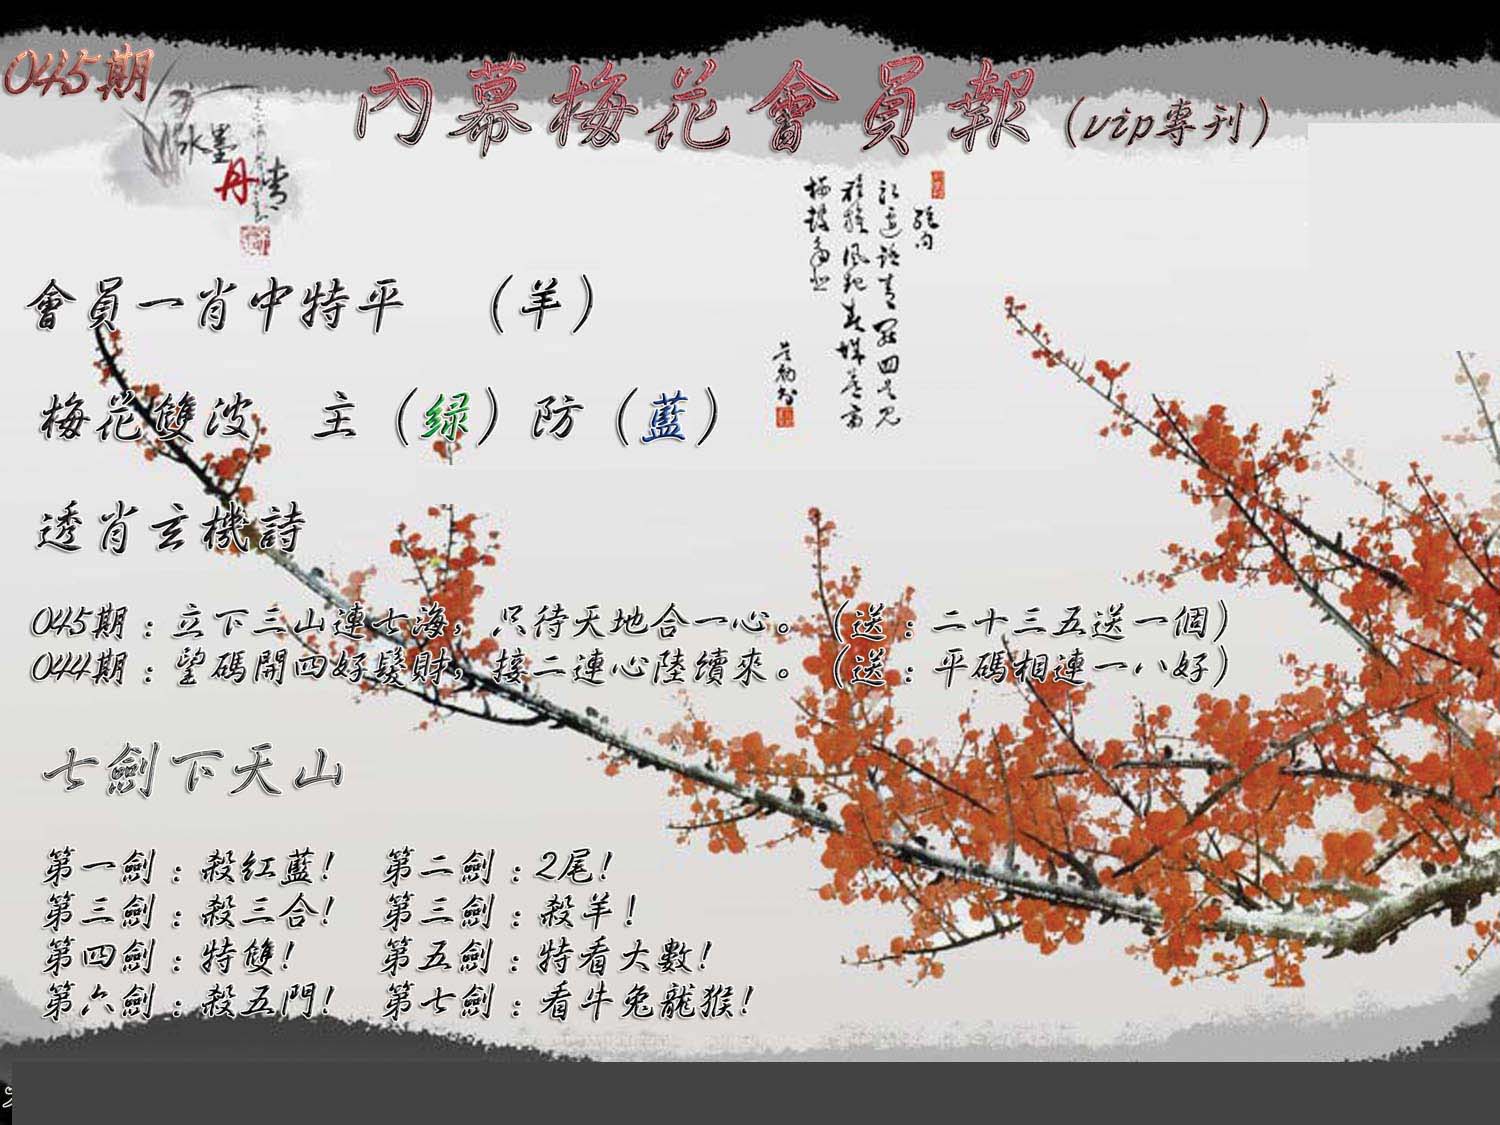 045期
內幕梅花會員報(vip專刊)
水墨
丹青
會員一肖中特平 (羊)
梅花雙波 主(绿)防(藍)
透肖玄機詩
045期:立下三山連七海,只待天地合一心。(送:二十三五送一個)
044期:望碼開四好髮財,接二連心陸續來。(送:平碼相連一八好)
七劍下天山
第一劍:殺红藍! 第二劍:2尾!
第三劍:殺三合! 第三劍:殺羊!
第四劍:特雙! 第五劍:特看大數!
第六劍:殺五門! 第七劍:看牛兔龍猴!